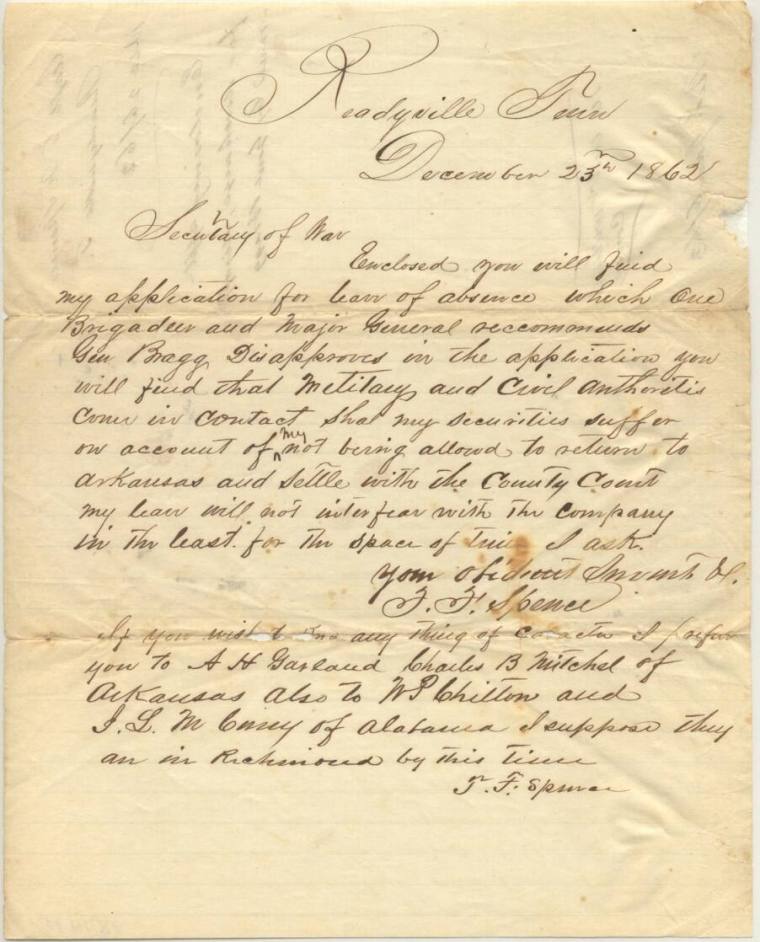 Readyville Tenn
December 23rd 1862
Secretary of War
Enclosed you will find
my application for leav of absence which One
Brigadeer and Major General reccommends
Gen Bragg Disapproves in the application you
will find that Metitary and Civil Authoritis
Come in Contact Shal my Securities suffer
on account of my not being allowd to return to
Arkansas and Settle with the County Court
my leav will not interfear with the company
in the least. for the space of time I ask.
your obedient Servent &c.
T. F. Spence
If you wish to any thing of I refur
you to A H Garland Charles B Mitchel of
Arkansas also to W P Chilton and
J. L. M Curry of Alabama I suppose they
are in Richmond by this time
T. F. Spence